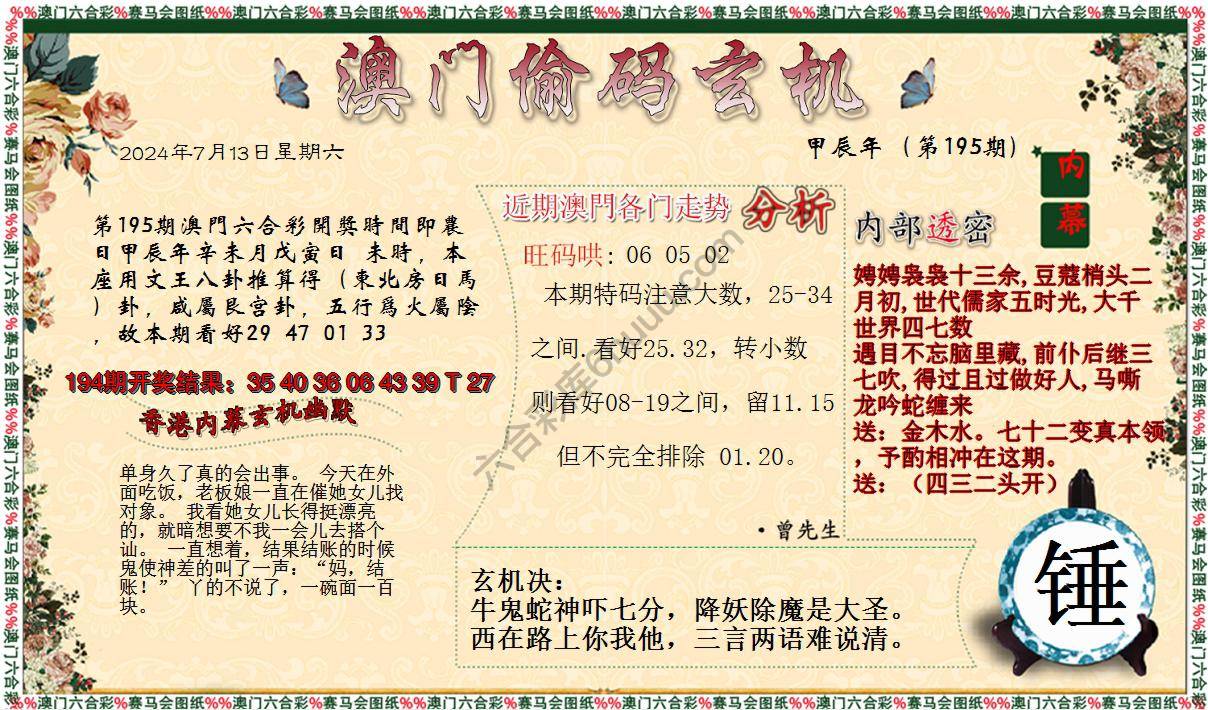 %%澳门六合彩%赛马会图纸%%澳门六合彩%赛马会图纸%%澳门六合彩%赛马会图纸%%澳门六合彩%赛马会图纸%%澳门六合彩%赛马会图纸%%澳门六合彩%赛马会图纸%%
澳门偷码玄机
2024年7月13日星期六
甲辰年（第195期）
第195期澳門六合彩開獎時間即農
日甲辰年辛未月戊寅日 未時，本
座用文王八卦推算得（東北房日馬
）卦，咸屬艮宫卦，五行爲火屬陰
，故本期看好29 47 01 33
194期开奖结果：35 40 36 06 43 39 T 27
香港内幕玄机幽默
单身久了真的会出事。 今天在外
面吃饭，老板娘一直在催她女儿找
对象。 我看她女儿长得挺漂亮
的，就暗想要不我一会儿去搭个
讪。 一直想着，结果结账的时候
鬼使神差的叫了一声：“妈，结
账！” 丫的不说了，一碗面一百
块。
近期澳門各门走势 分析
旺码哄: 06 05 02
本期特码注意大数，25-34
之间.看好25.32，转小数
则看好08-19之间，留11.15
但不完全排除 01.20。
·曾先生
玄机决：
牛鬼蛇神吓七分，降妖除魔是大圣。
西在路上你我他，三言两语难说清。
内幕
内部透密
娉娉袅袅十三余,豆蔻梢头二
月初,世代儒家五时光,大千
世界四七数
遇目不忘脑里藏,前仆后继三
七吹,得过且过做好人,马嘶
龙吟蛇缠来
送：金木水。七十二变真本领
，予酌相冲在这期。
送：（四三二头开）
锤
%%澳门六合彩%赛马会图纸%%澳门六合彩%赛马会图纸%%澳门六合彩%赛马会图纸%%澳门六合彩%赛马会图纸%%澳门六合彩%赛马会图纸%%澳门六合彩%赛马会图纸%%